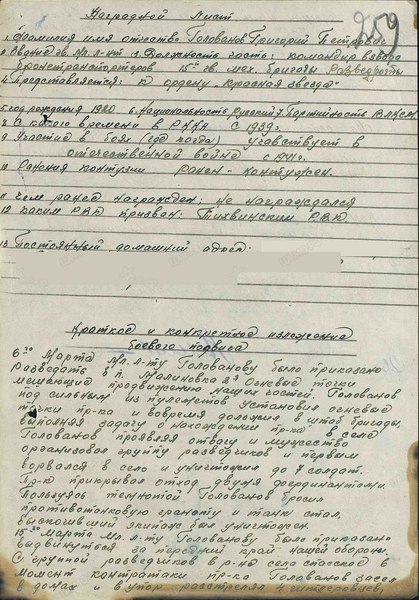 259
Наградной Лист
1 Фамилия имя отчество Голованов Григорий Петрович
2 Звание гв. мл. л-нт 3. Должность часть: командир взвода
бронетранспортеров 15ой гв. мех. бригады Разведроты
4 Представляется: к ордену „Красная звезда"
5 год рождения 1920 6. Национальность Русский 7. Партийность ВЛКСМ
8 С какого времени в РККА С 1939г.
9 Участие в боях (где когда) Участвует в
отечественной войне с 1941г.
10 Ранения контузии ранен - контужен.
11 Чем ранее награжден: не награждался
12 каким РВК призван: Тихвинским РВК
13 Постоянный домашний адрес.
Краткое и конкретное изложение
боевого подвига
6го Марта Мл. л-ту Голованову было приказано
разведать в п. Малиновка огневые точки
мешающие продвижению наших частей. Голованов
под сильным из пулеметов установил огневые
точки пр-ка и вовремя доложил в штаб бригады,
выполняя задачу о нахождении пр-ка в селе
Голованов проявляя отвагу и мужество
организовал группу разведчиков и первым
ворвался в село и уничтожил до 7 солдат.
Пр-к прикрывал отход двумя фердинантами.
Пользуясь темнотой Голованов бросил
противотанковую гранату и танк стал,
выскочивший экипаж был уничтожен.
15го Марта мл. л-ту Голованову было приказано
выдвинуться за передний край нашей обороны.
С группой разведчиков в р-не села спасское в
момент контратаки пр-ка Голованов засел
в домах и в упор расстрелял гитлеровцев,